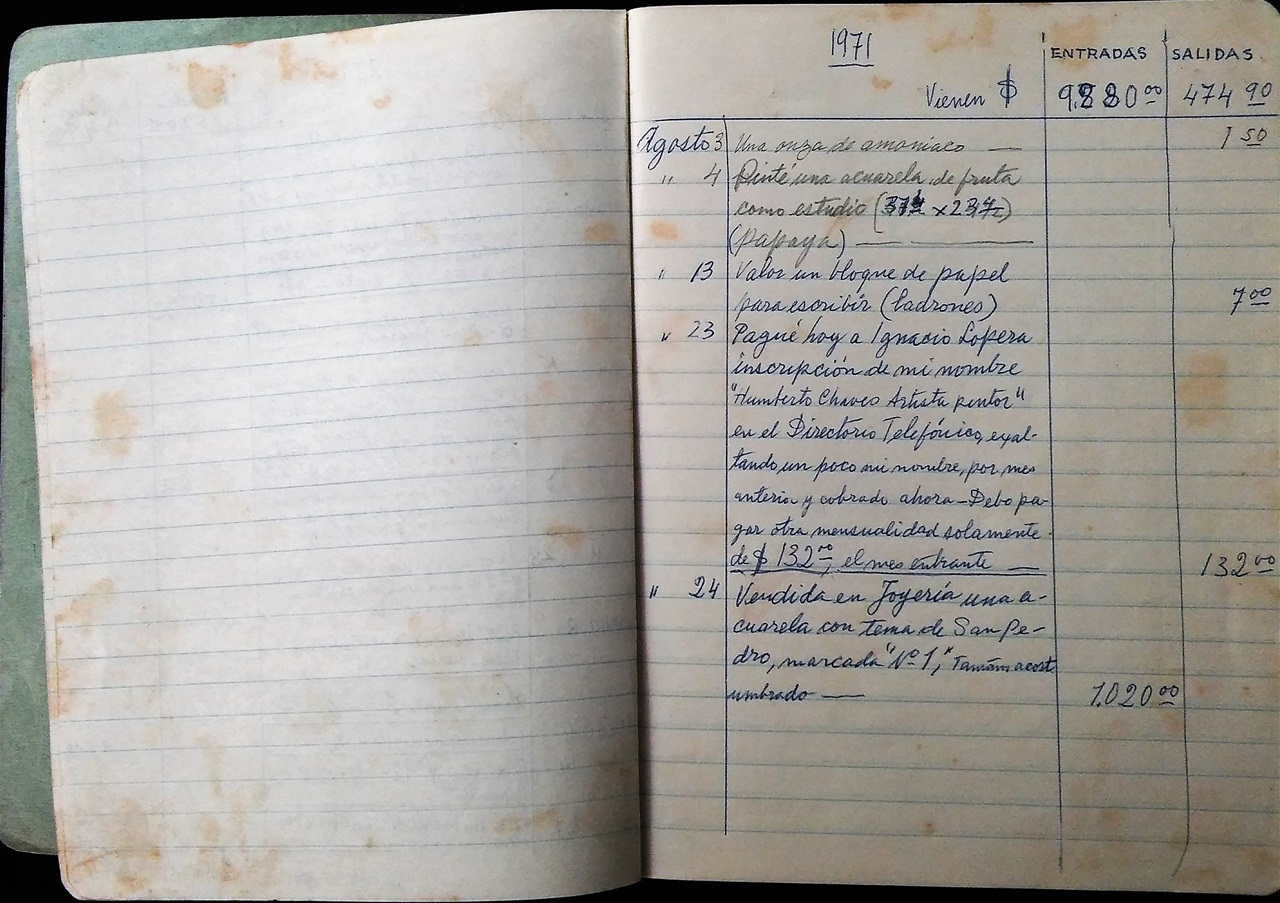 1971
ENTRADAS SALIDAS.
Vienen $ 9.880.00 474.90
Agosto 3 Una onza de amoniaco — 1.50
" 4 Pinté una acuarela de fruta
como estudio (
(papaya) — —
" 13 Valor un bloque de papel
para escribir (ladrones) 7.00
" 23 Pagué hoy a Ignacio Lopera
inscripción de mi nombre
"Humberto Chaves Artista pintor"
en el Directorio Telefónico, exal-
tando un poco mi nombre, por mes
anterior y cobrado ahora - Debo pa-
gar otra mensualidad solamente.
de $ 132.00, el mes entrante — 132.00
" 24 Vendida en Joyería una a-
cuarela con tema de San Pe-
dro, marcada "Nº 1," Tamaño acost
umbrado — 1.020.00